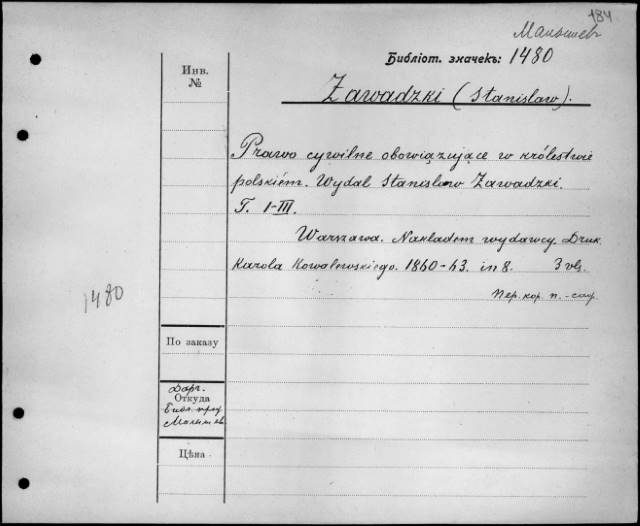 184
Малышев
Библіот. значекъ: 1480
Инв.
№
Zawadzki (Stanisław).
Prawo cywilne obowiązujące w królestwie
polskiém. Wydał Stanisław Zawadzki.
T. I-III.
Warszawa. Nakładem wydawcy. Druk.
Karola Kowalewskiego. 1860-63. in 8. 3 vls.
Пер. кор. п.-саф.
1480
По заказу
Откуда
Библ. проф.
Малышева
Цѣна